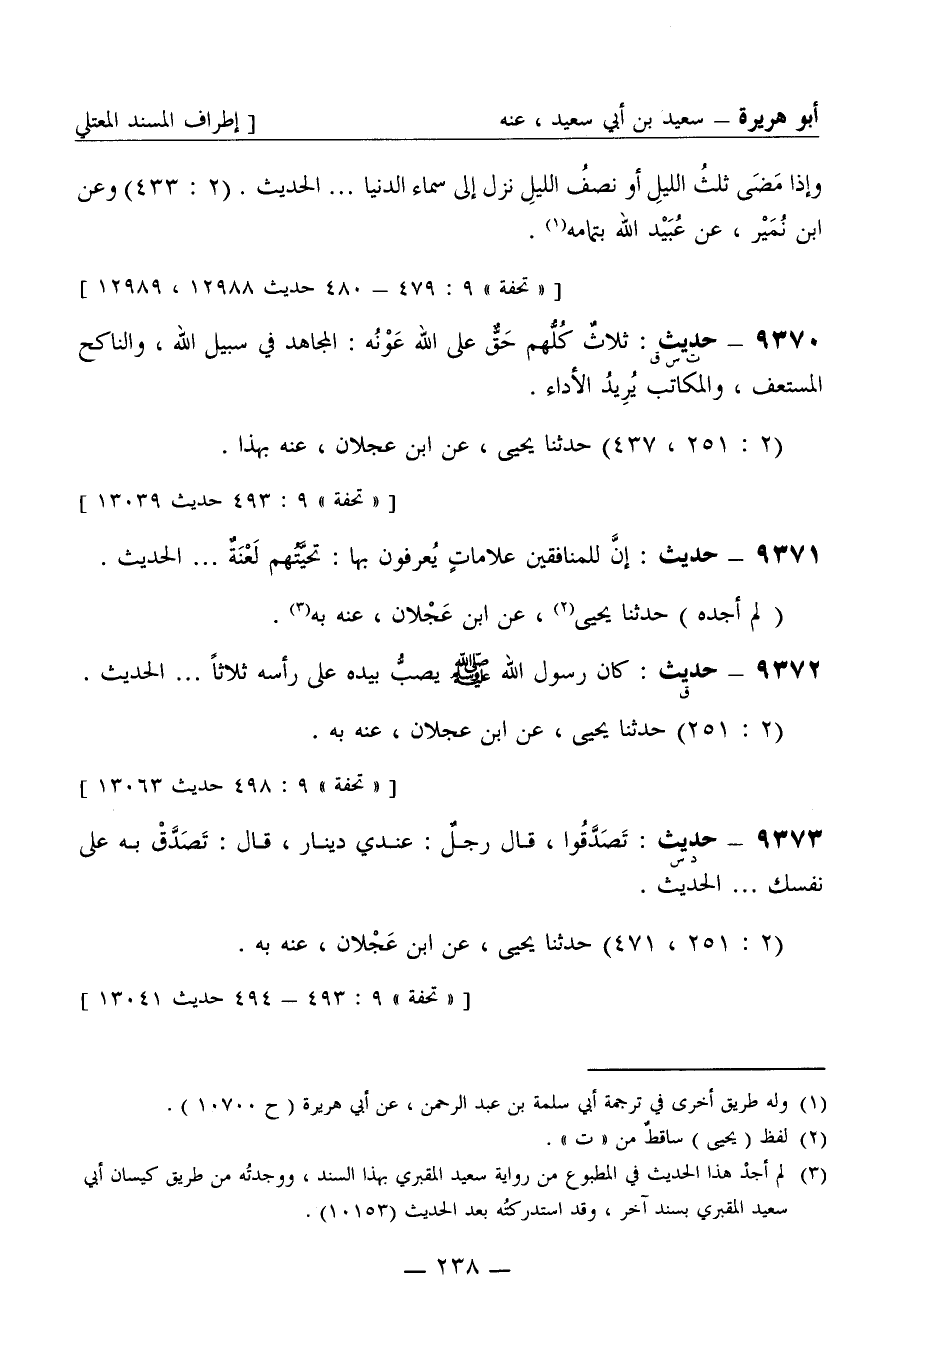 أبو هريرة ــ سعيد بن أبي سعيد ، عنه [ إطراف المسند المعتلي
وإذا مَضَى ثلثُ الليلِ أو نصفُ الليل نزل إلى سماء الدنيا ... الحديث . (٢ : ٤٣٣) وعن
ابن نُمَيْر ، عن عُبَيْد الله بتمامه(١) .
[ « تحفة » ٩ : ٤٧٩ ــ ٤٨٠ حديث ١٢٩٨٨ ، ١٢٩٨٩ ]
٩٣٧٠ ــ حديث : ثلاثٌ كُلُّهم حَقٌّ على الله عَوْنُه : المجاهد في سبيل الله ، والناكح
ت س ق
المستعف ، والمكاتب يُرِيدُ الأداء .
(٢ : ٢٥١ ، ٤٣٧) حدثنا يحيى ، عن ابن عجلان ، عنه بهذا .
[ « تحفة » ٩ : ٤٩٣ حديث ١٣٠٣٩ ]
٩٣٧١ ــ حديث : إنَّ للمنافقين علاماتٍ يُعرفون بها : تحيَّتُهم لَعْنَةٌ ... الحديث .
( لم أجده ) حدثنا يحيى(٢) ، عن ابن عَجْلان ، عنه به(٣) .
٩٣٧٢ ــ حديث : كان رسول الله ﷺ يصبُّ بيده على رأسه ثلاثاً ... الحديث .
ق
(٢ : ٢٥١) حدثنا يحيى ، عن ابن عجلان ، عنه به .
[ « تحفة » ٩ : ٤٩٨ حديث ١٣٠٦٣ ]
٩٣٧٣ ــ حديث : تَصَدَّقُوا ، قال رجلٌ : عندي دينار ، قال : تَصَدَّقْ به على
د س
نفسك ... الحديث .
(٢ : ٢٥١ ، ٤٧١) حدثنا يحيى ، عن ابن عَجْلان ، عنه به .
[ « تحفة » ٩ : ٤٩٣ ــ ٤٩٤ حديث ١٣٠٤١ ]
(١) وله طريق أخرى في ترجمة أبي سلمة بن عبد الرحمن ، عن أبي هريرة ( ح ١٠٧٠٠ ) .
(٢) لفظ ( يحيى ) ساقطٌ من « ت » .
(٣) لم أجدْ هذا الحديث في المطبوع من رواية سعيد المقبري بهذا السند ، ووجدتُه من طريق كيسان أبي
سعيد المقبري بسند آخر ، وقد استدركتُه بعد الحديث (١٠١٥٣) .
ــ ٢٣٨ ــ